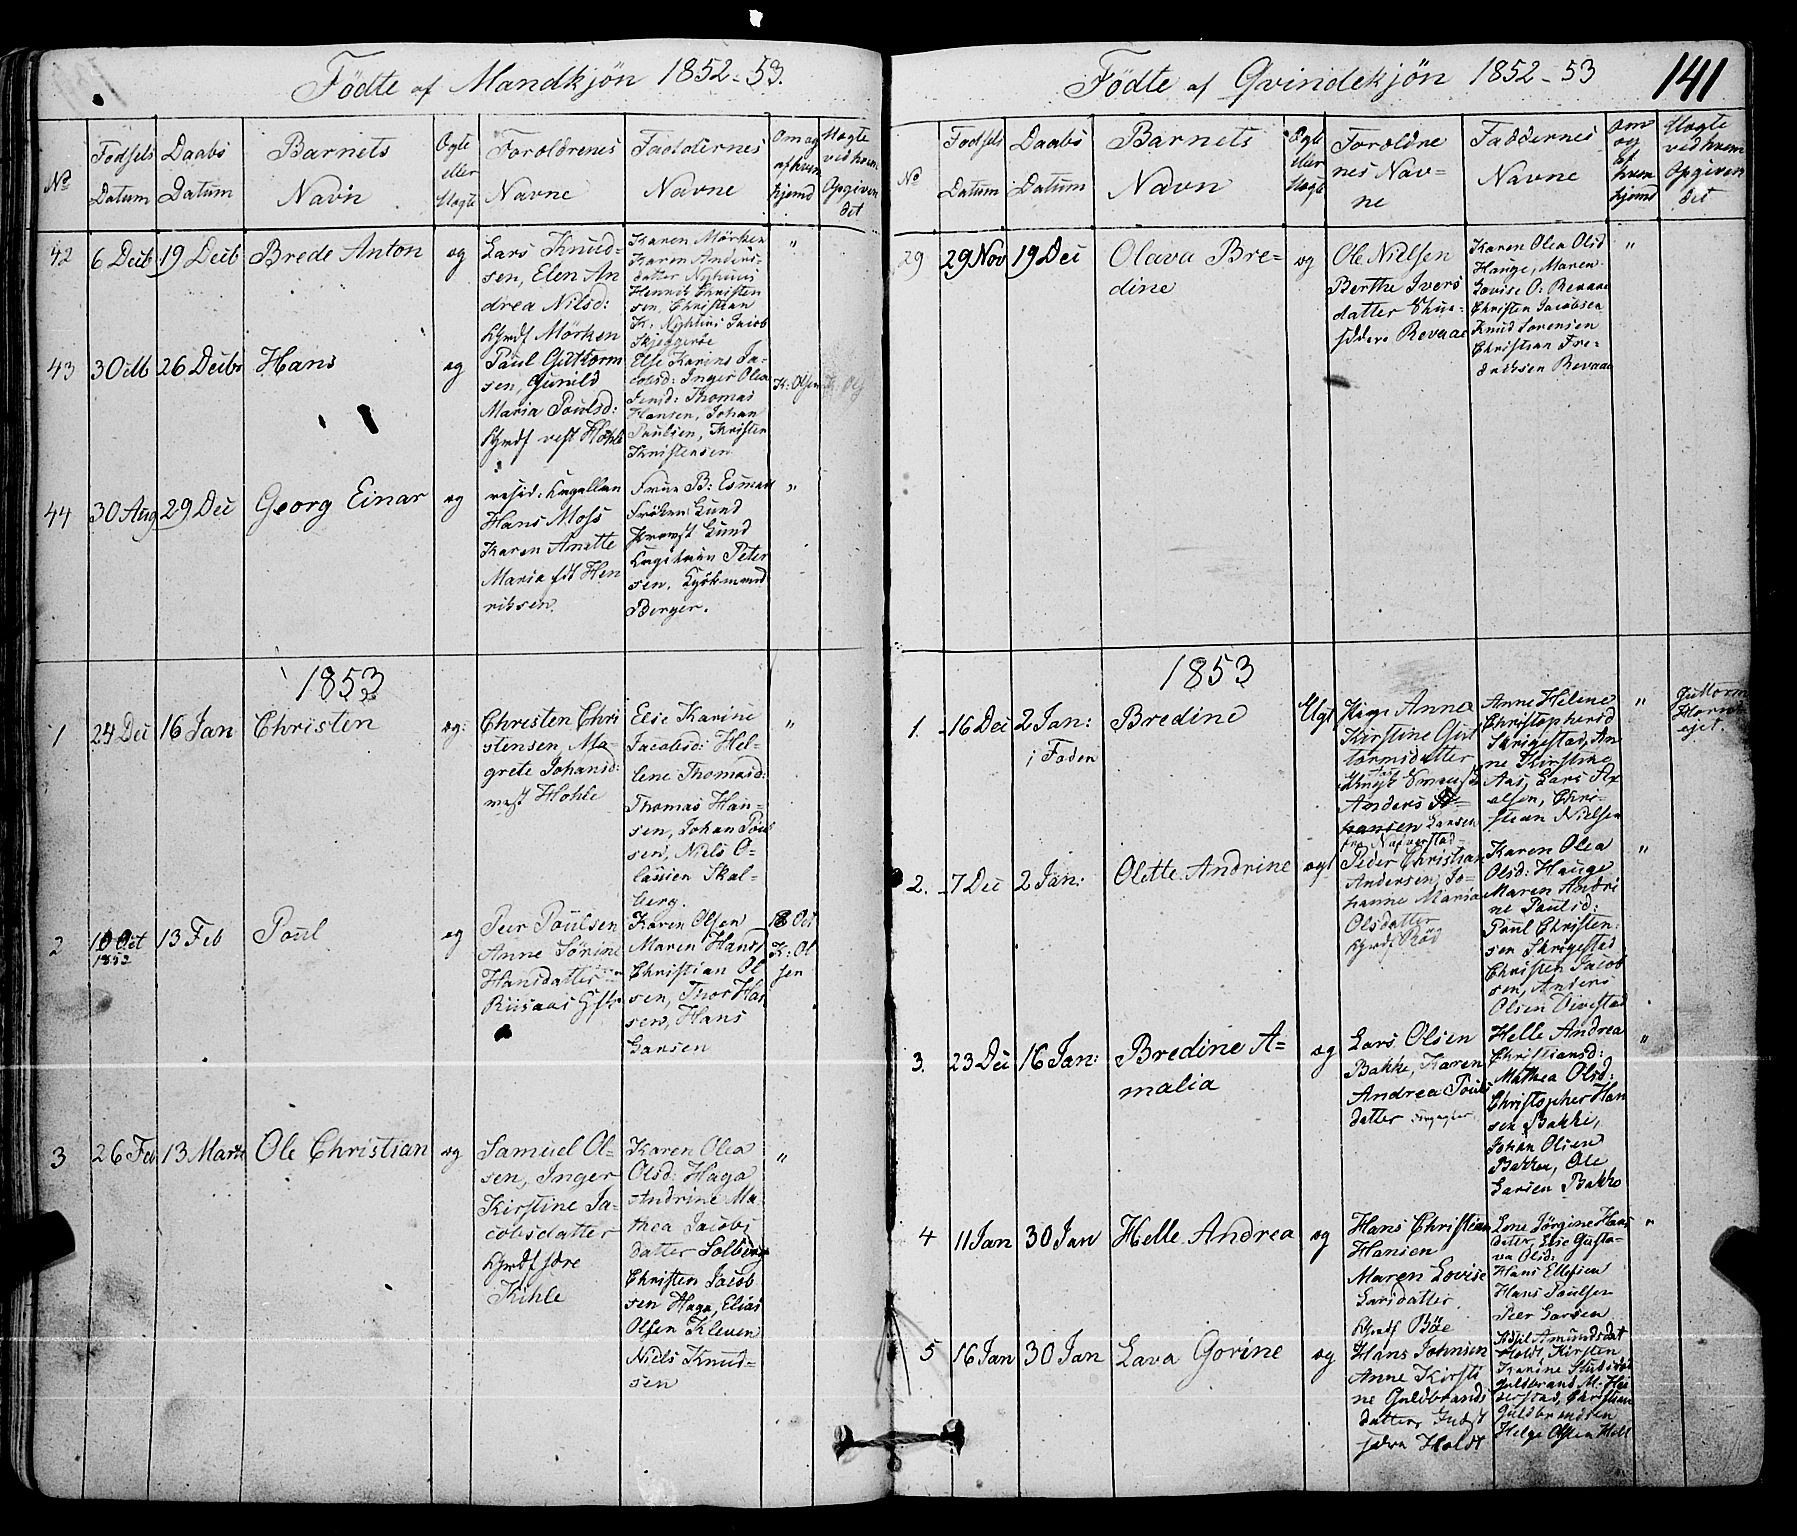 Födte af Mandkjön 1852-53.
No
Födsels Datum
Daabs Datum
Barnets Navn
Ægte eller Uægte
Forældrenes Navne
Faddernes Navne
Om og af hvem hjemd
Uægte ved hvem Opgiven det
42
6 Decb
19 Decb
Brede Anton
æg
Lars Knud-
sen, Elen An
drea Nilsd:
Mörken
Karen Mörken
Karen Anders-
datter Nyhuus
Henrik Christen
sen, Christian
Jacob
Skjeggeröe
"
43
26 Decb
Hans
æg
Paul Guttorm
sen, Gunild
Maria Poulsd:
vest Hohle
Else Karine Ja-
cobsd: Inger Olea
Jensd: Thomas
Hansen, Johan
Paulsen, Kristen
Kristensen
K: Olsen
44
30 Aug
29 Dec
Georg Einar
æg
resid: Capellan
Hans Moss
Karen Anette
Maria föd Hen
riksen.
Frue B: Esmark
Fröken Lund
Provst Lund
Capitain Peter
sen, Kjöbmand
Berger.
"
1853
1
24 Dec
16 Jan
Christen
æg:
Christen Chri
stensen, Ma-
grete Johansd:
vest Hohle
Else Karine
Jacobsd: Hel-
lene Thomasd:
Thomas Han-
sen, Johan Poul
sen, Niels O-
lausen Skal-
berg.
"
2
10 Oct
1852
13 Feb
Poul
æg
Peer Poulsen
Anne Sörine
Hansdatter
Riisaas
Karen Olsen
Maren Hansd
Christian Ol
sen, Thor Han
sen, Hans
Larsen
18 Oct
K: Ol
sen
3
26 Feb
13 Marts
Ole Christian
æg
Samuel Ol-
sen, Inger
Kirstine Ja-
cobsdatter
Gmdf söre
Kihle
Karen Olea
Olsd: Haga
Andrine Ma
thea Jacobs
datter Solberg
Christen Jacob
sen Haga, Elias
Olsen Kleven
Niels Knud-
sen
"
Födte af Qvindekjön 1852-53
141
No
Födsels Datum
Daabs Datum
Barnets Navn
Ægte eller Uægte
Forældre
nes Nav-
ne
Faddernes
Navne
Om og af hvem hjemd
Uægte ved hvem Opgiven det
29
29 Nov
19 Dec
Olava Bre-
dine
æg
Ole Nielsen
Berthe Ivers
datter
Revaae
Karen Olea Olsd
Hauge, Maren
Lovise O: Revaae
Christen Jacobsen
Knud Sorensen
Christian Fre-
driksen Revaae
"
1853
1.
16 Dec
2 Jan:
i Faden
Bredine
Uægt
Pige Anne
Kirstine Gut
tormsdatter
Anders
Larsen
fra Naverstad
Anne Helene
Christophersd
Skrigestad, An
ne Kirstine
Aas, Lars Ax
elsen, Chri-
stian Nielsen
"
2.
7 Dec
2 Jan:
Olette Andrine
ægt
Peder Christian
Andersen, Jo-
hanne Maria
Olsdatter
Gmdf Röd
Karen Olea
Olsd: Hauge
Maren Andri
ne Paulsd:
Paul Christen
sen Skrigestad
Christen Jacob
sen, Anders
Olsen
"
3.
23 Dec
16 Jan:
Bredine A-
malia
æg
Lars Olsen
Bakke, Karen
Andrea Pouls
datter
Helle Andrea
Christiansd:
Mathea Olsd:
Christopher Han
sen Bakke,
Johan Olsen
Bakke, Ole
Larsen Bakke
"
4
11 Jan
30 Jan
Helle Andrea
æg
Hans Christian
Hansen
Maren Lovise
Larsdatter
Gmdf Böe
Lene Jörgine Hans
datter, Else Gusta-
va Olsd:
Hans Ellefsen
Hans Paulsen
Peer Larsen
"
5
16 Jan
30 Jan
Lava Gorine
æg
Hans Johnsen
Anne Kirsti
ne Guldbrands
datter
Holdt
Amundsdat
Holdt, Kirsten
Karine
Guldbrand
Christian
Guldbrandsen
Helge Olsen